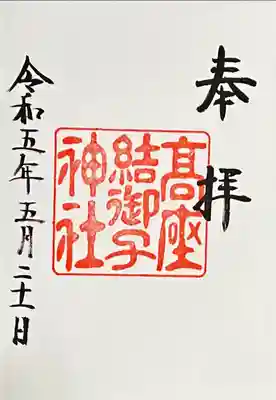 奉拝
高座
結御子
神社
令和五年五月二十一日